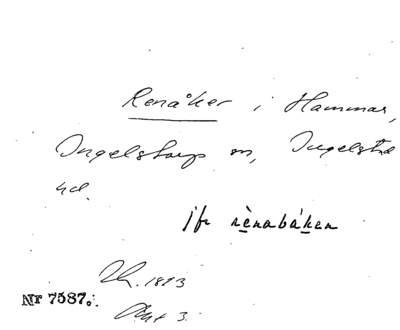 Renåker i Hammar,
Ingelstorps sn, Ingelstad
hd.
jfr rènabákan
1883
Nr 7587.
Akt 3.